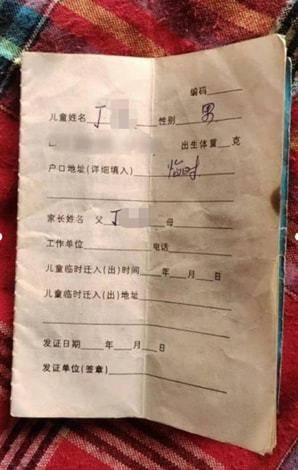 编码
儿童姓名 丁 性别 男
出生体重 克
户口地址(详细填入) 临时
家长姓名 父 丁 母
工作单位 电话
儿童临时迁入(出)时间 年 月 日
儿童临时迁入(出)地址
发证日期 年 月 日
发证单位(签章)